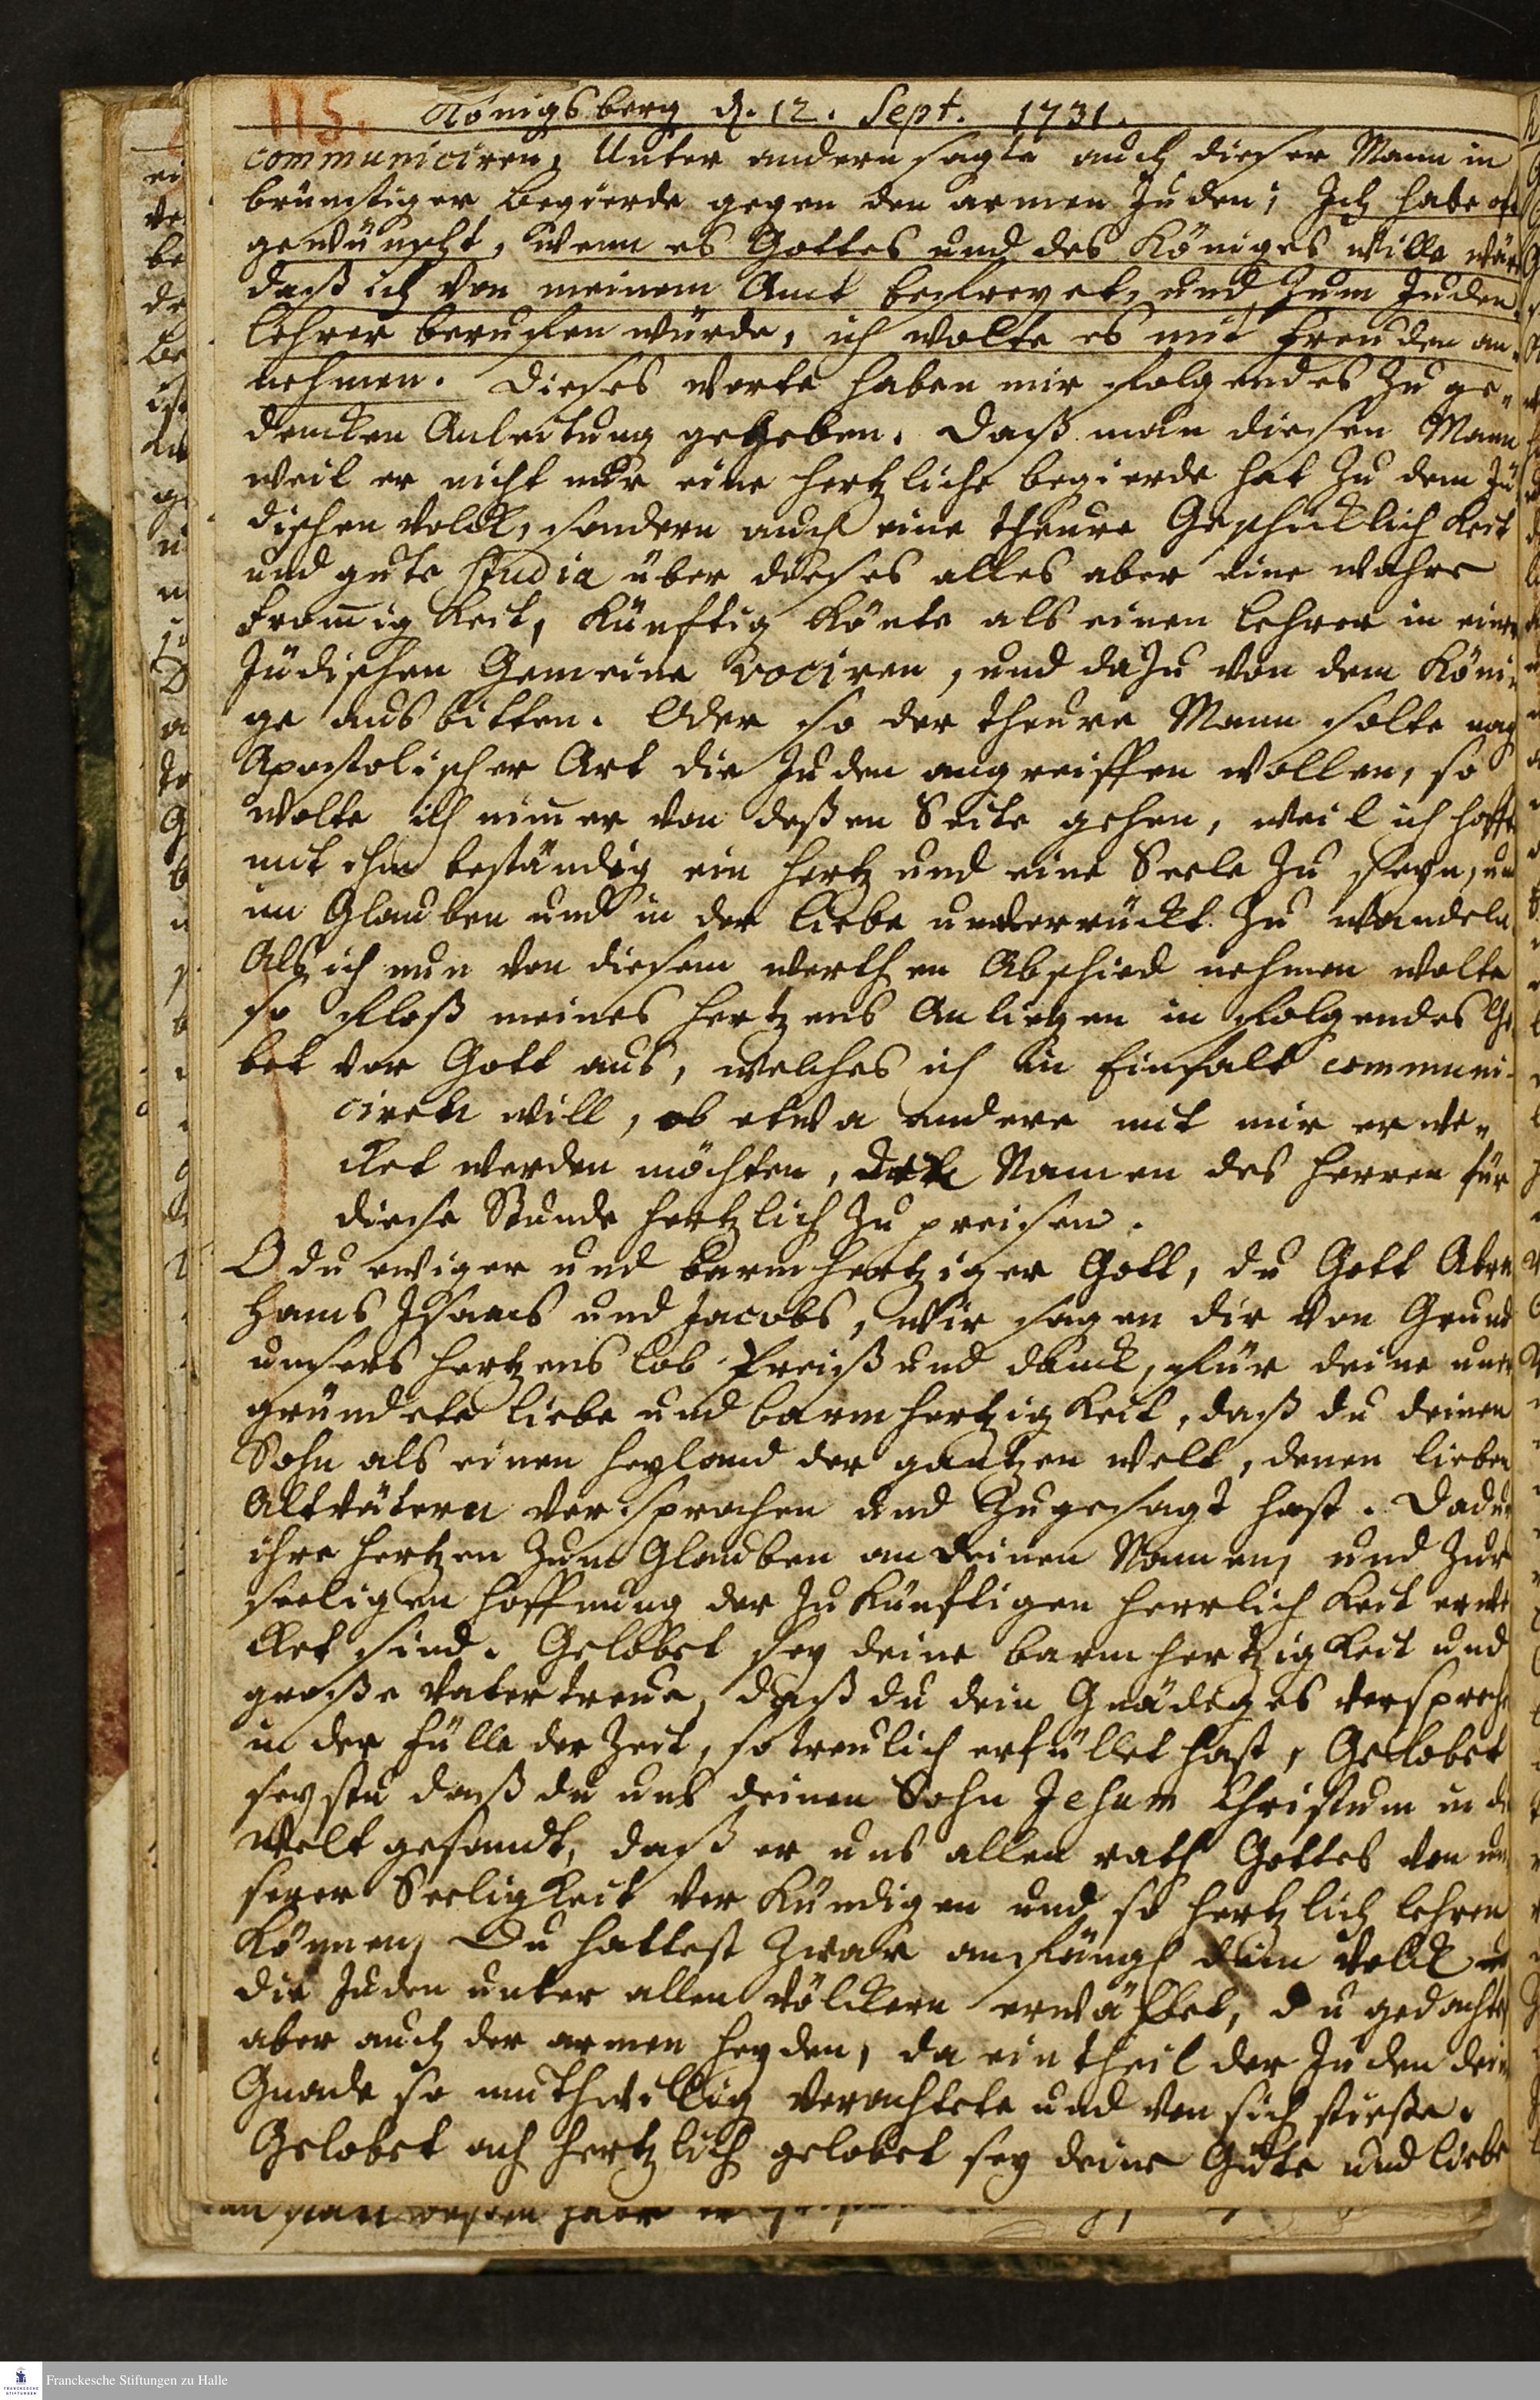 115. Königsberg d. 12. Sept. 1731.
communiciren, Unter andern sagte auch dieser Mann in
brünstiger Begierde gegen den armen Juden; Ich habe oft
gewünscht, wenn es Gottes und des Königes wille wär
daß ich von meinem Amt befreyet, und zum Juden
lehrer beruffen würde, ich wolte es mit freuden an-
nehmen. Dieses Worte haben mir folgendes zu ge-
dencken Anleitung gegeben. Daß man diesen Mann
weil er nicht nur eine hertzliche begierde hat zu dem Jü
dischen volck, sondern auch eine theure Geschicklichkeit
und gute studia über dieses alles aber eine wahre
from̄igkeit, künftig könte als einen lehrer in einer
Jüdischen Gemeine vociren, und dazu von dem Köni-
ge ausbitten. Oder so der theure Mann solte nach
Apostolischer Art die Juden angreiffen wollen, so
wolte ich nim̄er von deßen Seite gehen, weil ich hoffe
mit ihm beständig ein hertz und eine Seele zu seyn, und
im Glauben und in der liebe unverrückt zu wandeln
Als ich nun von diesem werthen Abschied nehmen wolte
so floß meines hertzens Anliegen in folgendes Ge
bet vor Gott aus, welches ich in Einfalt communi-
ciren will, ob etwa andere mit mir erwe-
cket werden möchten, den Namen des Herren für
diese Stunde hertzlich zu preisen.
O du ewiger und barmhertziger Gott, du Gott Abra
hams Isaacs und Jacobs, wir sagen dir von Grund
unsers hertzens lob Preiß und danck, für deine uner
gründete liebe und barmhertzigkeit, daß du deinen
Sohn als einen heyland der gantzen welt, denen lieben
Altvätern versprochen und zugesagt hast. Dadurch
ihre hertzen zum Glauben an deinen Namen, und zur
seeligen hoffnung der zukünftigen herrlichkeit erwe
cket sind. Gelobet sey deine barmhertzigkeit und
große vatertreue, daß du dein Gnädiges versprechen
in der fülle der Zeit, so treulich erfüllet hast, Gelobet
seystu daß du uns deinen Sohn Jesum Christum in die
welt gesandt, daß er uns allen rath Gottes von un
serer Seeligkeit verkündigen und so hertzlich lehren
können, Du hattest zwar anfängl dein volck
die Juden unter allen völckern erwählet, du gedachtest
aber auch der armen heyden, da ein theil der Juden deine
Gnade so muthwillig verachtete und von sich stieße.
Gelobet ach hertzlich gelobet sey deine Güte und liebe
Franckesche Stiftungen zu Halle